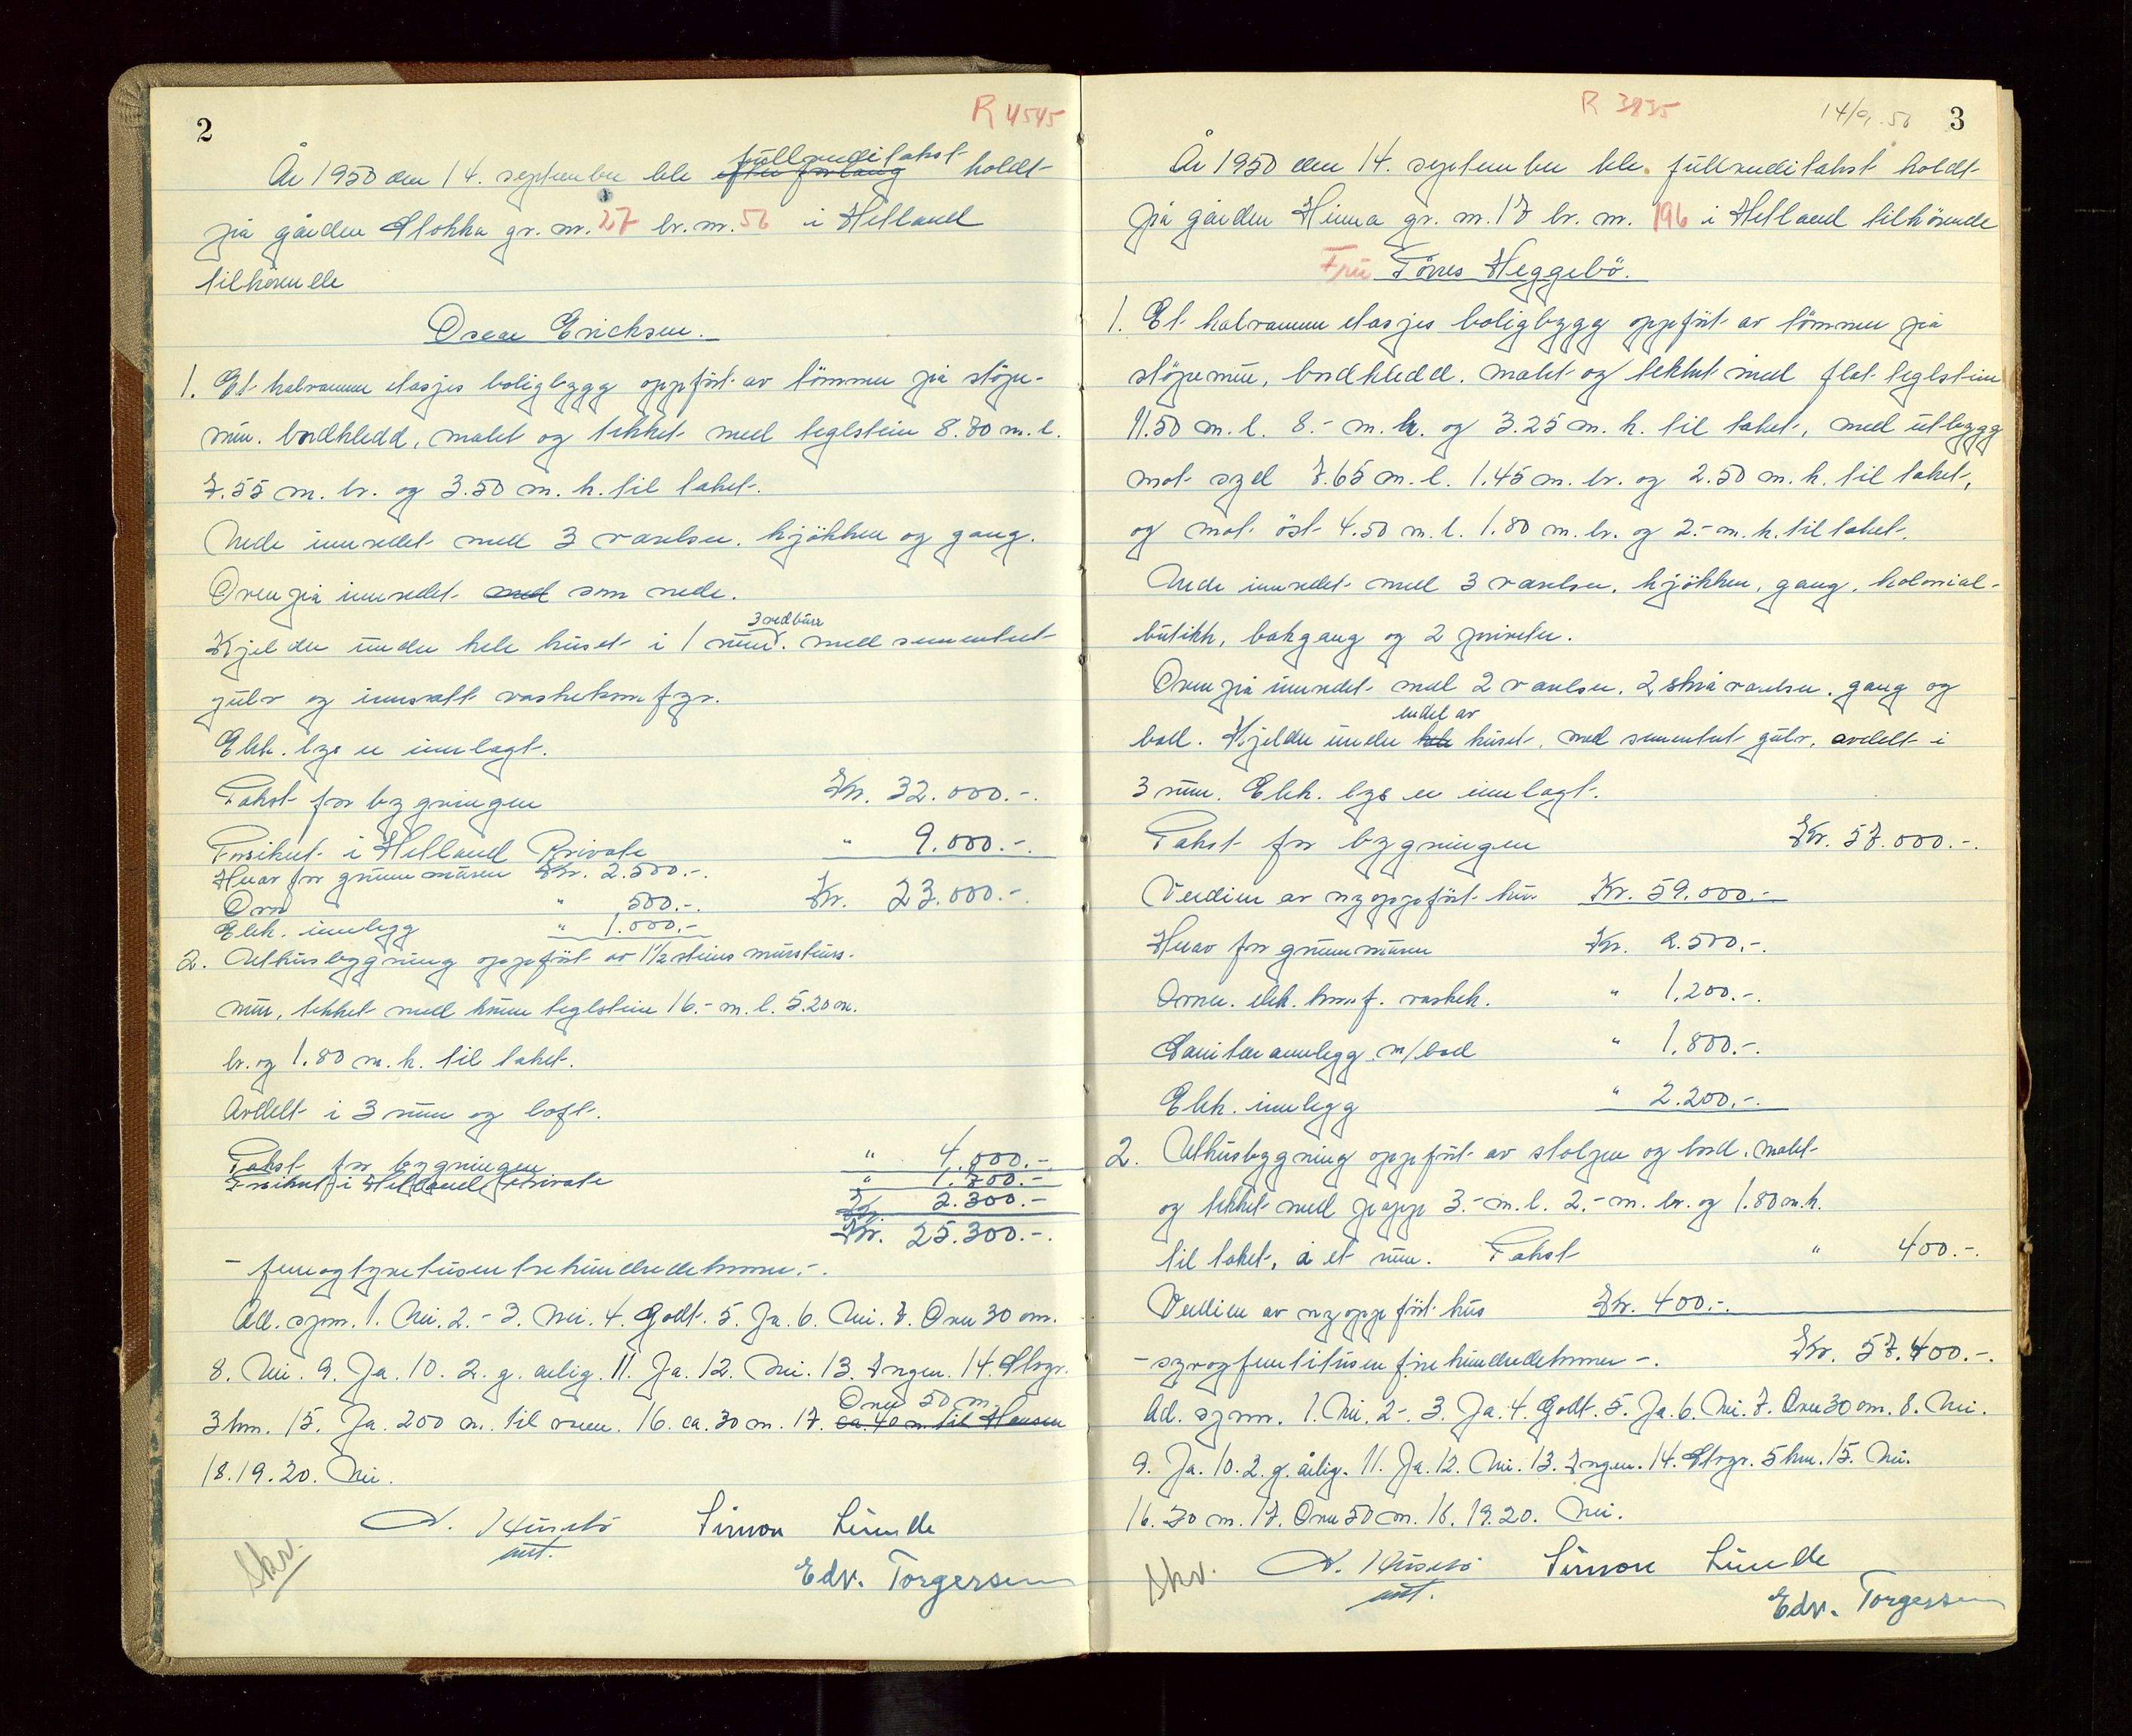 2
R 4545
År 1950 den 14. september ble efter forlang fullverditakst holdt
på gården Stokka gr. nr. 27 br. nr. 56 i Hetland
tilhörende
Oscar Erichsen.
1. Et halvannen etasjes boligbygg oppfört av tömmer på stöpe-
mur. bordkledd, malt og tekket med teglstein 8.80 m. l.
7.55 m. br. og 3.50 m. h. til taket.
Nede innredet med 3 værelser. kjökken og gang.
Oven på innredet med som nede.
Kjelder under hele huset i 1 rum. 3 vedburer med sementert
gulv og innsatt vaskekomfyr.
Elek. lys er innlagt.
Takst for bygningen Kr. 32.000.-.
Forsikret i Hetland Private " 9.000.-.
Herav for grunnmuren Kr. 2.500.-.
Kr. 23.000.-.
Ovn " 500.-.
Elek. innlegg " 1.000.-
2. Uthusbygning oppfört av 1½ steins mursteins-
mur, tekket med krum teglstein 16.- m. l. 5.20 m.
br. og 1.80 m. h. til taket.
Avdelt i 3 rum og loft.
Takst for bygningen " 4.000.-.
Forsikret i Hetland Private " 1.700.-
Kr. 2.300.-
Kr. 25.300.-.
- femogtyvetusentrehundredekroner.-.
Ad. spm. 1. Nei. 2.- 3. Nei. 4. Godt. 5. Ja. 6. Nei. 7. Over 30 cm.
8. Nei. 9. Ja. 10. 2. g. årlig. 11. Ja. 12. Nei. 13. Ingen. 14. Stvgr.
3 km. 15. Ja. 200 m. til vann. 16. ca. 30 m. 17. ca. 40 m. til Hansen Over 50 m.
18. 19. 20. Nei.
Skr.
Simon Lunde
Edv. Torgersen
3
R 3835
14/9.50
År 1950 den 14. september ble fullverditakst holdt
på gården Hinna gr. nr. 17 br. nr. 196 i Hetland tilhörende
Fru Tönes Heggebö.
1. Et halvannen etasjes boligbygg oppfört av tömmer på
stöpemur, bordkledd. malt og tekket med flat teglstein
11.50 m. l. 8.- m. br. og 3.25 m. h. til taket, med utbygg
mot syd 7.65 m. l. 1.45 m. br. og 2.50 m. h. til taket,
og mot öst 4.50 m. l. 1.80 m. br. og 2.- m. h. til taket.
Nede innredet med 3 værelser, kjökken, gang, kolonial-
butikk, bakgang og 2 priveter.
Oven på innredet med 2 værelser, 2 skråværelser, gang og
bad. Kjelder under hele endel av huset, med sementert gulv, avdelt i
3 rum. Elek. lys er innlagt.
Takst for bygningen Kr. 57.000.-.
Verdien av nyoppfört hus Kr. 59.000.-
Herav for grunnmuren Kr. 2.500.-.
Ovner. elek. komf. vaskek. " 1.200.-.
Sanitæranlegg m/bad " 1.800.-.
Elek. innlegg " 2.200.-.
2. Uthusbygning oppfört av stolper og bord. malt
og tekket med papp 3.- m. l. 2.- m. br. og 1.80 m. h.
til taket, i et rum. Takst " 400.-.
Verdien av nyoppfört hus Kr. 400.-.
- syvogfemtitusenfirehundredekroner -. Kr. 57.400.-.
Ad. spm. 1. Nei. 2-. 3. Ja. 4. Godt. 5. Ja. 6. Nei. 7. Over 30 cm. 8. Nei.
9. Ja. 10. 2. g. årlig. 11. Ja. 12. Nei. 13. Ingen. 14. Stvgr. 5 km. 15. Nei.
16. 30 m. 17. Over 50 m. 18. 19. 20. Nei.
Skr.
Simon Lunde
Edv. Torgersen